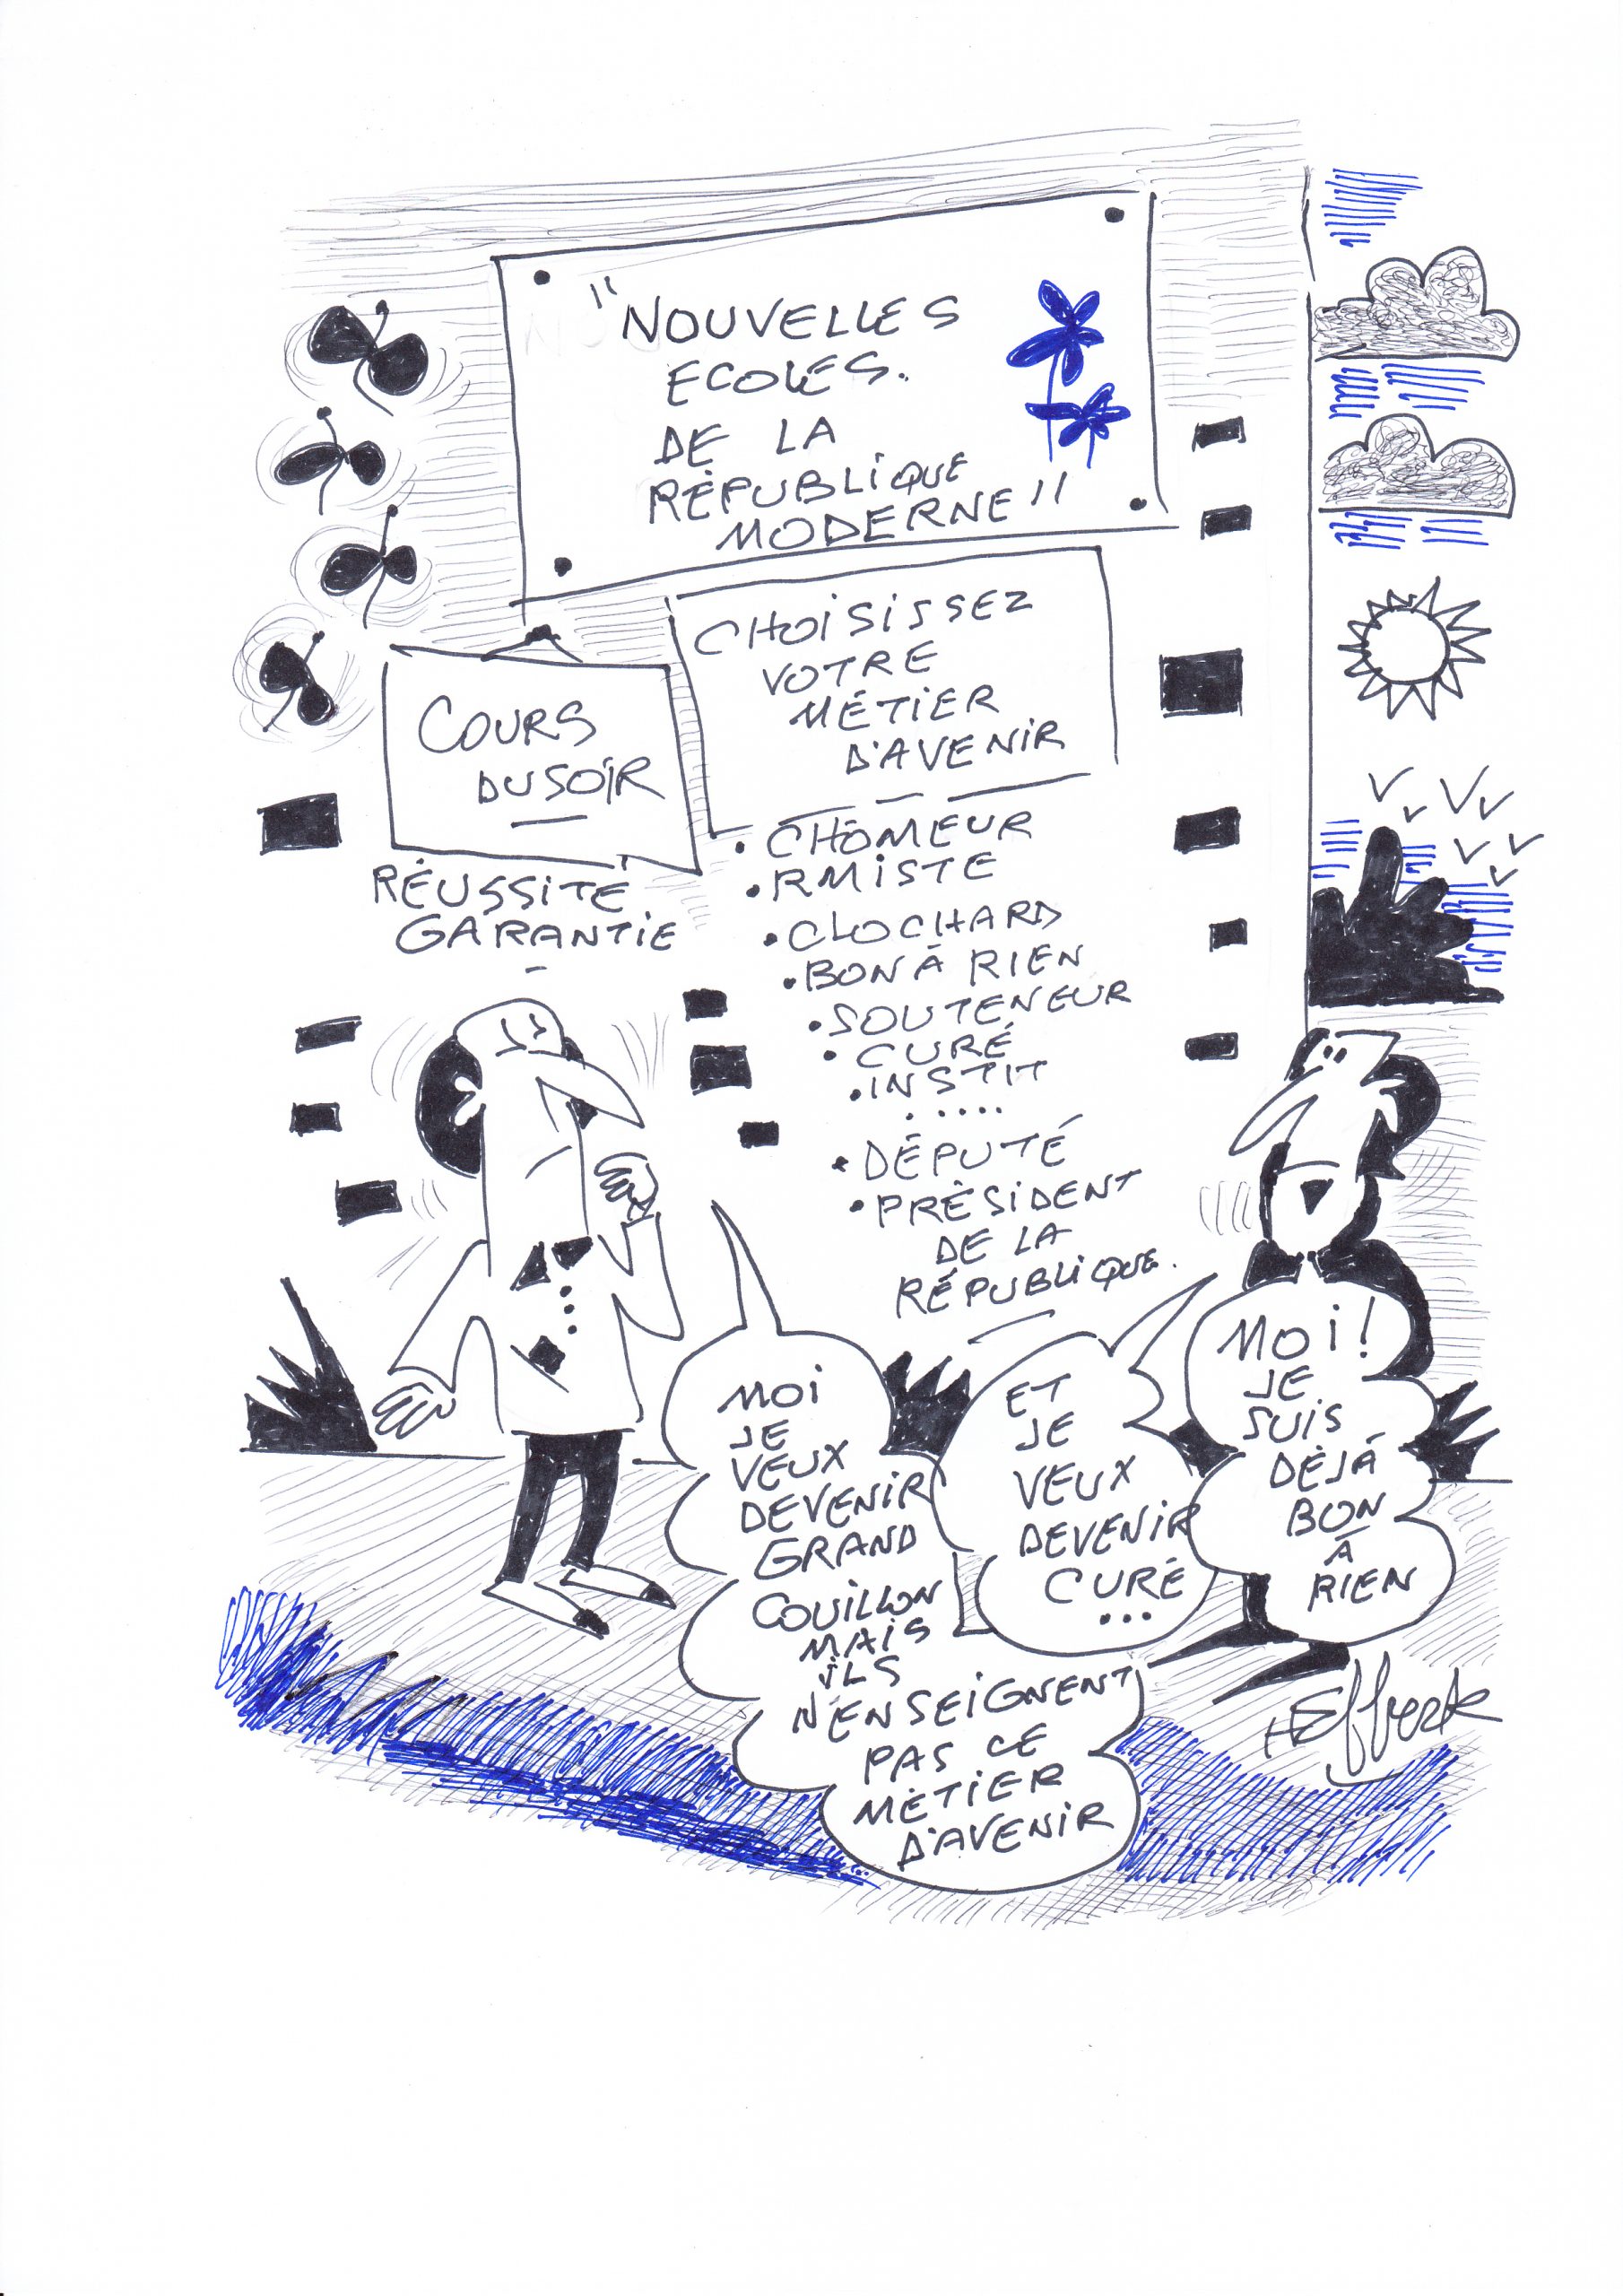 "NOUVELLES
ECOLES.
DE LA
RÉPUBLIQUE
MODERNE"
CHOISISSEZ
VOTRE
MÉTIER
D'AVENIR
COURS
DU SOIR
RÉUSSITE
GARANTIE
• CHÔMEUR
• RMISTE
• CLOCHARD
• BON À RIEN
• SOUTENEUR
• CURÉ
• INSTIT
.....
• DÉPUTÉ
• PRÉSIDENT
DE LA
RÉPUBLIQUE.
MOI
JE
VEUX
DEVENIR
GRAND
COUILLON
MAIS
ILS
N'ENSEIGNENT
PAS CE
MÉTIER
D'AVENIR
ET
JE
VEUX
DEVENIR
CURÉ
...
MOI!
JE
SUIS
DÉJÀ
BON
À
RIEN